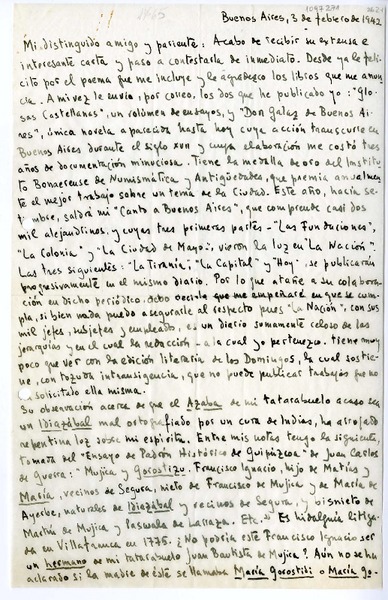 1047270
Buenos Aires, 3 de febrero de 1942
Mi distinguido amigo y pariente: Acabo de recibir su extensa e
interesante carta y paso a contestarla de inmediato. Desde ya le feli-
cito por el poema que me incluye y le agradezco los libros que me anun-
cia. A mi vez le envío, por correo, los dos que he publicado yo: "Glo-
sas Castellanas", un volúmen de ensayos, y "Don Galaz de Buenos Ai-
res", única novela aparecida hasta hoy cuya acción transcurre en
Buenos Aires durante el siglo XVII y cuya elaboración me costó tres
años de documentación minuciosa. Tiene la medalla de oro del Institu-
to Bonaerense de Numismática y Antigüedades, que premia anualmen-
te el mejor trabajo sobre un tema de la Ciudad. Este año, hacia se-
tiembre, saldrá mi "Canto a Buenos Aires", que comprende casi dos
mil alejandrinos, y cuyas tres primeras partes - "Las Fundaciones",
"La Colonia" y "La Ciudad de Mayo", vieron la luz en "La Nación".
Las tres siguientes: "La Tiranía", "La Capital" y "Hoy", se publicarán
progresivamente en el mismo diario. Por lo que atañe a su colabora-
ción en dicho periódico, debo decirle que me empeñaré en que se cum-
pla, si bien nada puedo asegurarle al respecto pues "La Nación", con sus
mil jefes, subjefes y empleados, es un diario sumamente celoso de las
jerarquías y en el cual la redacción - a la cual yo pertenezco - tiene muy
poco que ver con la edición literaria de los Domingos, la cual sostie-
ne, con tozuda intransigencia, que no puede publicar trabajos que no
ha solicitado ella misma.
Su observación acerca de que el Azaba de mi tatarabuelo acaso sea
un Idiazábal mal ortografiado por un cura de Indias, ha arrojado
repentina luz sobre mi espíritu. Entre mis notas tengo la siguiente,
tomada del "Ensayo de Padrón Histórico de Guipúzcoa" de Juan Carlos
de Guerra: "Mujica y Gorostizu. Francisco Ignacio, hijo de Matías y
María, vecinos de Segura, nieto de Francisco de Mujica y de María de
Ayerbe, naturales de Idiazábal y vecinos de Segura, y bisnieto de
Martín de Mujica y Pascuala de Larraza. Etc." Es hidalguía litiga-
da en Villafranca en 1775. ¿No podría este Francisco Ignacio ser
un hermano de mi tatarabuelo Juan Bautista de Mujica? Aún no se ha
aclarado si la madre de éste se llamaba María Gorostiti o María Go-